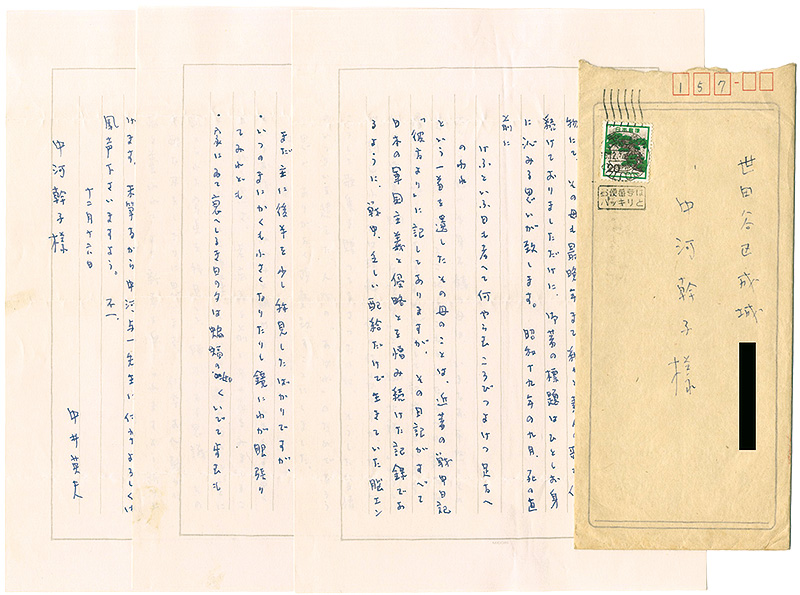 157-
日本郵便
20
郵便番号は
ハッキリと
世田谷区成城
中河幹子様
物にて、その母も最晩年まで
続けてありましただけに、御著の標題はひとしお身
に沁みる思いが致します。昭和十九年の九月、死の直
前に
けふといふ日も考へて何やらむこころ
のわれ
という一首を遺したその母のことは、近著の戦中日記
「彼方より」に記してありますが、その日記がすべて
日本の軍国主義と侵略とを憎み続けた記録であ
るように、戦中、乏しい配給だけで生きていた腸エン
まだ主に後半を少し拝見したばかりですが、
・いつのまにかくも小さくなりたりし鏡にわが眼張り
てみれども
・家にゐて衰へしるき日の夕は蝙蝠の如くいでて歩むも
けます。末筆ながら中河与一先生に何卒よろしく御
風声下さいますよう。不一
十二月十六日
中河幹子様
中井英夫